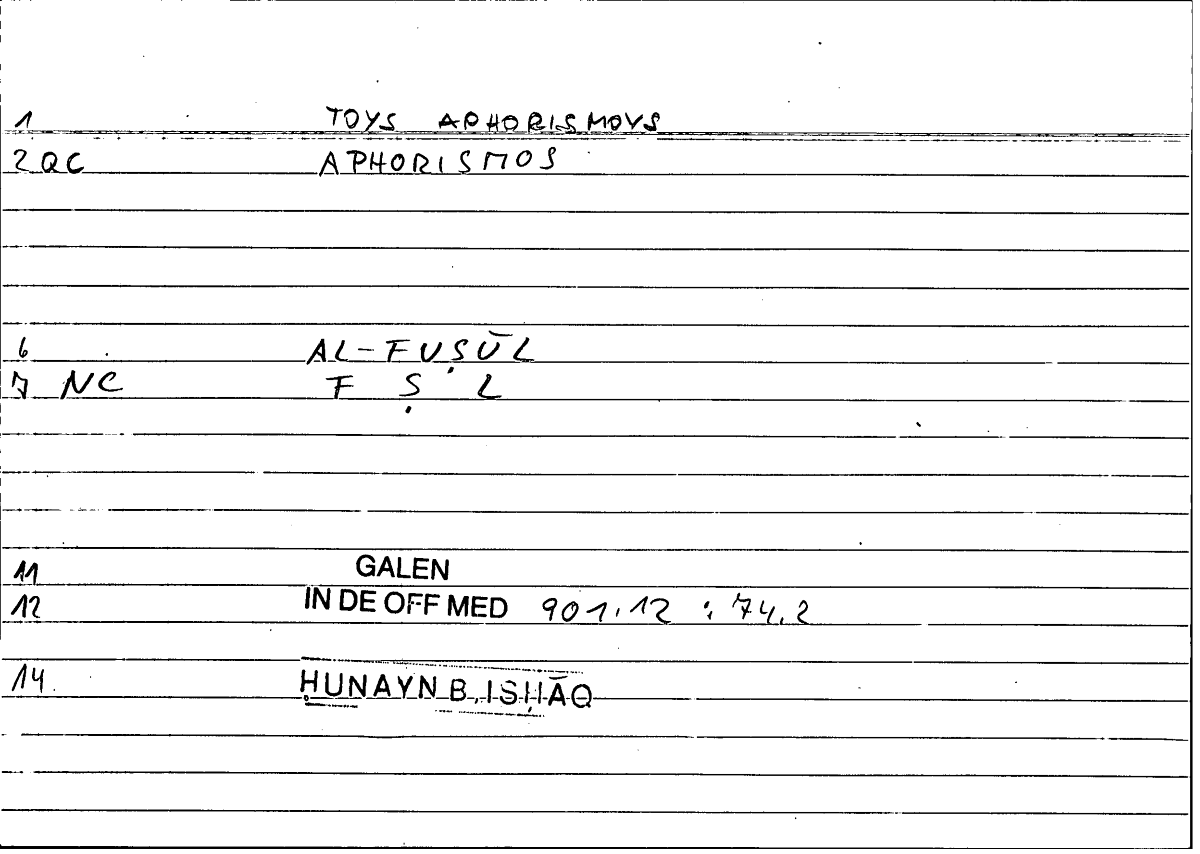 1 TOYS APHORISMOYS
2 QC APHORISMOS
6 AL-FUṢŪL
7 NC F Ṣ L
11 GALEN
12 IN DE OFF MED 901.12 : 74.2
14 ḤUNAYN B. ISḤĀQ